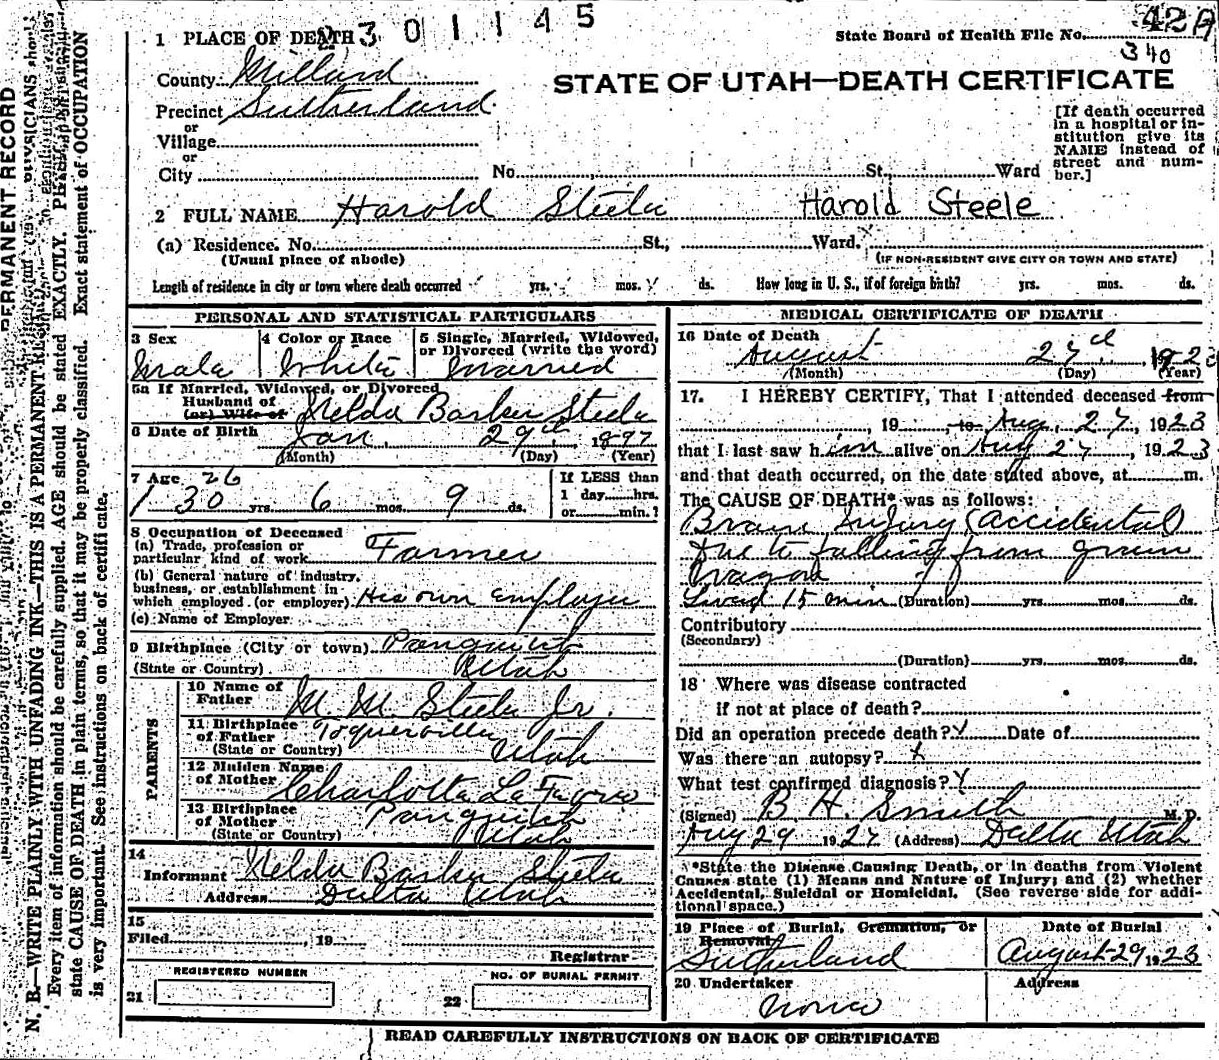 2301145
State Board of Health File No. 42A
340
1 PLACE OF DEATH
County Millard
STATE OF UTAH—DEATH CERTIFICATE
Precinct Sutherland
or
Village
or
City No. St., Ward
[If death occurred
in a hospital or in-
stitution give its
NAME instead of
street and num-
ber.]
2 FULL NAME Harold Steele Harold Steele
(a) Residence. No. St., Ward.
(Usual place of abode) (IF NON-RESIDENT GIVE CITY OR TOWN AND STATE)
Length of residence in city or town where death occurred yrs. mos. ds. How long in U. S., if of foreign birth? yrs. mos. ds.
PERSONAL AND STATISTICAL PARTICULARS
3 Sex
Male
4 Color or Race
White
5 Single, Married, Widowed,
or Divorced (write the word)
Married
5a If Married, Widowed, or Divorced
Husband of
(or) Wife of Nelda Barber Steele
6 Date of Birth
Jan. 29 1897
(Month) (Day) (Year)
7 Age 26
30 yrs. 6 mos. 9 ds.
If LESS than
1 day hrs.
or min.?
8 Occupation of Deceased
(a) Trade, profession or
particular kind of work Farmer
(b) General nature of industry,
business, or establishment in
which employed (or employer) His own employer
(c) Name of Employer
9 Birthplace (City or town) Panguitch
(State or Country) Utah
PARENTS
10 Name of
Father M. M. Steele Jr.
11 Birthplace
of Father Toquerville
(State or Country) Utah
12 Maiden Name
of Mother Charlotta La Favre
13 Birthplace
of Mother Panguitch
(State or Country) Utah
14
Informant Nelda Barber Steele
Address Delta Utah
15
Filed , 19
Registrar
REGISTERED NUMBER
21
NO. OF BURIAL PERMIT
22
MEDICAL CERTIFICATE OF DEATH
16 Date of Death
August 27 1923
(Month) (Day) (Year)
17. I HEREBY CERTIFY, That I attended deceased from
, 19 , to Aug. 27, 1923
that I last saw him alive on Aug 27, 1923
and that death occurred, on the date stated above, at m.
The CAUSE OF DEATH* was as follows:
Brain Injury (Accidental)
Due to falling from grain
Wagon
Lived 15 min (Duration) yrs. mos. ds.
Contributory
(Secondary)
(Duration) yrs. mos. ds.
18 Where was disease contracted
if not at place of death?
Did an operation precede death? Date of
Was there an autopsy?
What test confirmed diagnosis?
(Signed) B H Smith M. D.
Aug 29 1927 (Address) Delta Utah
*State the Disease Causing Death, or in deaths from Violent
Causes state (1) Means and Nature of Injury; and (2) whether
Accidental, Suicidal or Homicidal. (See reverse side for addi-
tional space.)
19 Place of Burial, Cremation, or
Removal
Sutherland
Date of Burial
August 29, 1923
20 Undertaker
None
Address
READ CAREFULLY INSTRUCTIONS ON BACK OF CERTIFICATE
N. B.—WRITE PLAINLY WITH UNFADING INK—THIS IS A PERMANENT RECORD
Every item of information should be carefully supplied. AGE should be stated EXACTLY.
state CAUSE OF DEATH in plain terms, so that it may be properly classified. Exact statement of OCCUPATION
is very important. See instructions on back of certificate.